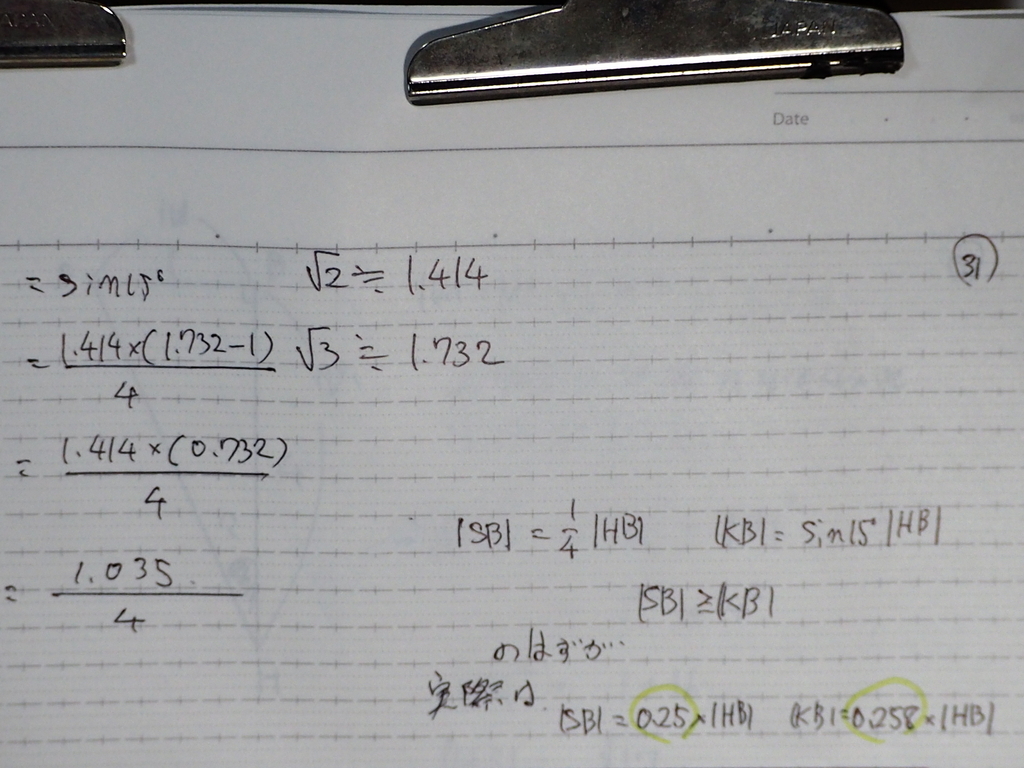 JAPAN
JAPAN
Date
31
= sin15° √2≒1.414
= 1.414×(1.732-1)/4 √3≒1.732
= 1.414×(0.732)/4
= 1.035/4
|SB| = 1/4 |HB| |KB| = sin15°|HB|
|SB| ≥ |KB|
のはずが…
実際は
|SB| = 0.25×|HB| |KB| = 0.258×|HB|